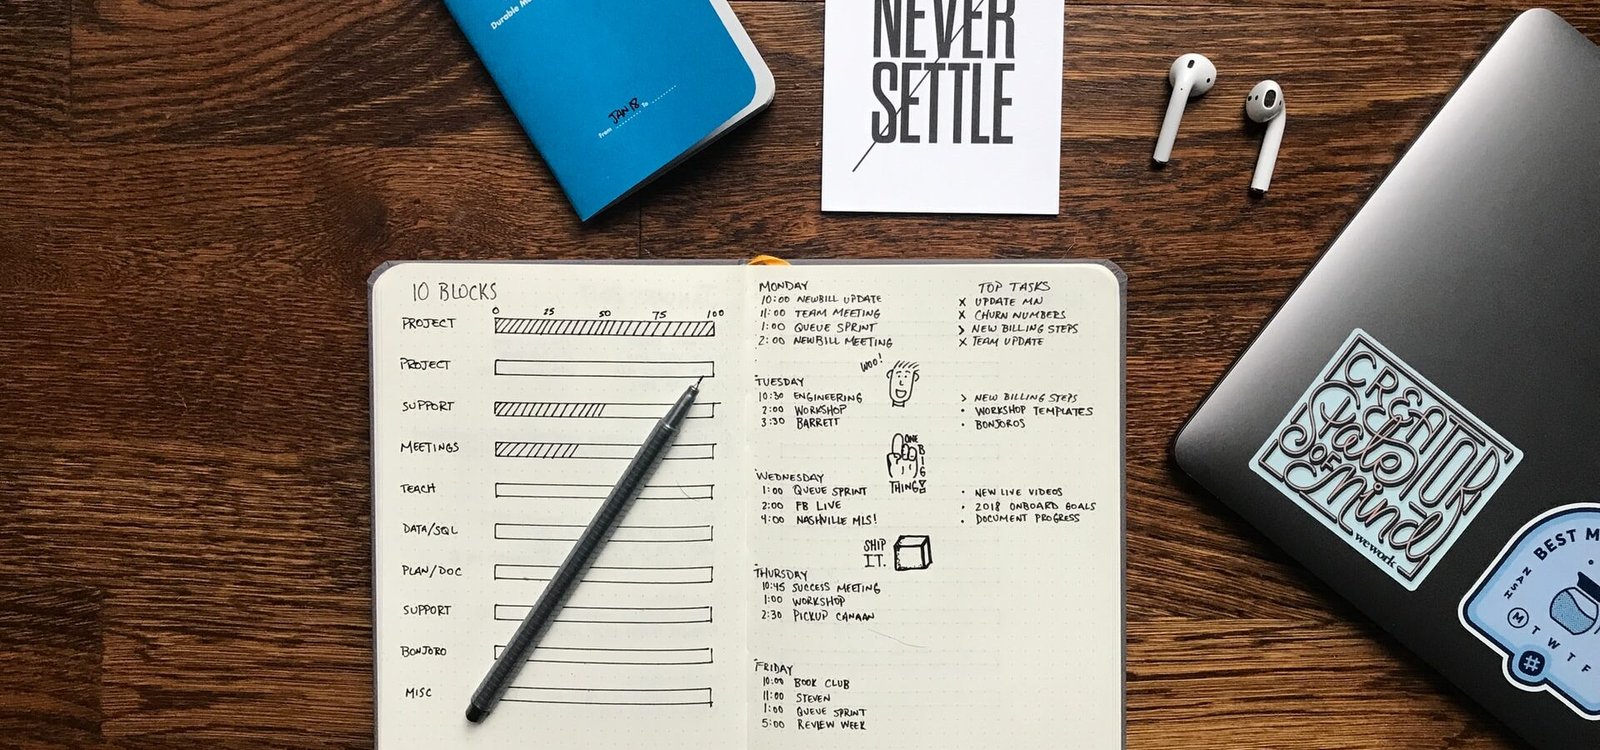 Durable
JAN 18
From ........ To ........
NEVER
SETTLE
10 BLOCKS
0 25 50 75 100
PROJECT
PROJECT
SUPPORT
MEETINGS
TEACH
DATA/SQL
PLAN/DOC
SUPPORT
BONJORO
MISC
MONDAY
10:00 NEWBILL UPDATE
11:00 TEAM MEETING
1:00 QUEUE SPRINT
2:00 NEWBILL MEETING
WOO!
TUESDAY
10:30 ENGINEERING
2:00 WORKSHOP
3:30 BARRETT
ONE
BIG
THING!
WEDNESDAY
1:00 QUEUE SPRINT
2:00 FB LIVE
4:00 NASHVILLE MLS!
SHIP
IT.
THURSDAY
10:45 SUCCESS MEETING
1:00 WORKSHOP
2:30 PICKUP CANAAN
FRIDAY
10:00 BOOK CLUB
11:00 STEVEN
1:00 QUEUE SPRINT
5:00 REVIEW WEEK
TOP TASKS
X UPDATE MN
X CHURN NUMBERS
> NEW BILLING STEPS
X TEAM UPDATE
> NEW BILLING STEPS
• WORKSHOP TEMPLATES
• BONJOROS
• NEW LIVE VIDEOS
• 2018 ONBOARD GOALS
• DOCUMENT PROGRESS
CREATOR
State
OF
Mind
wework
BEST M
NASH
M T W T F
#